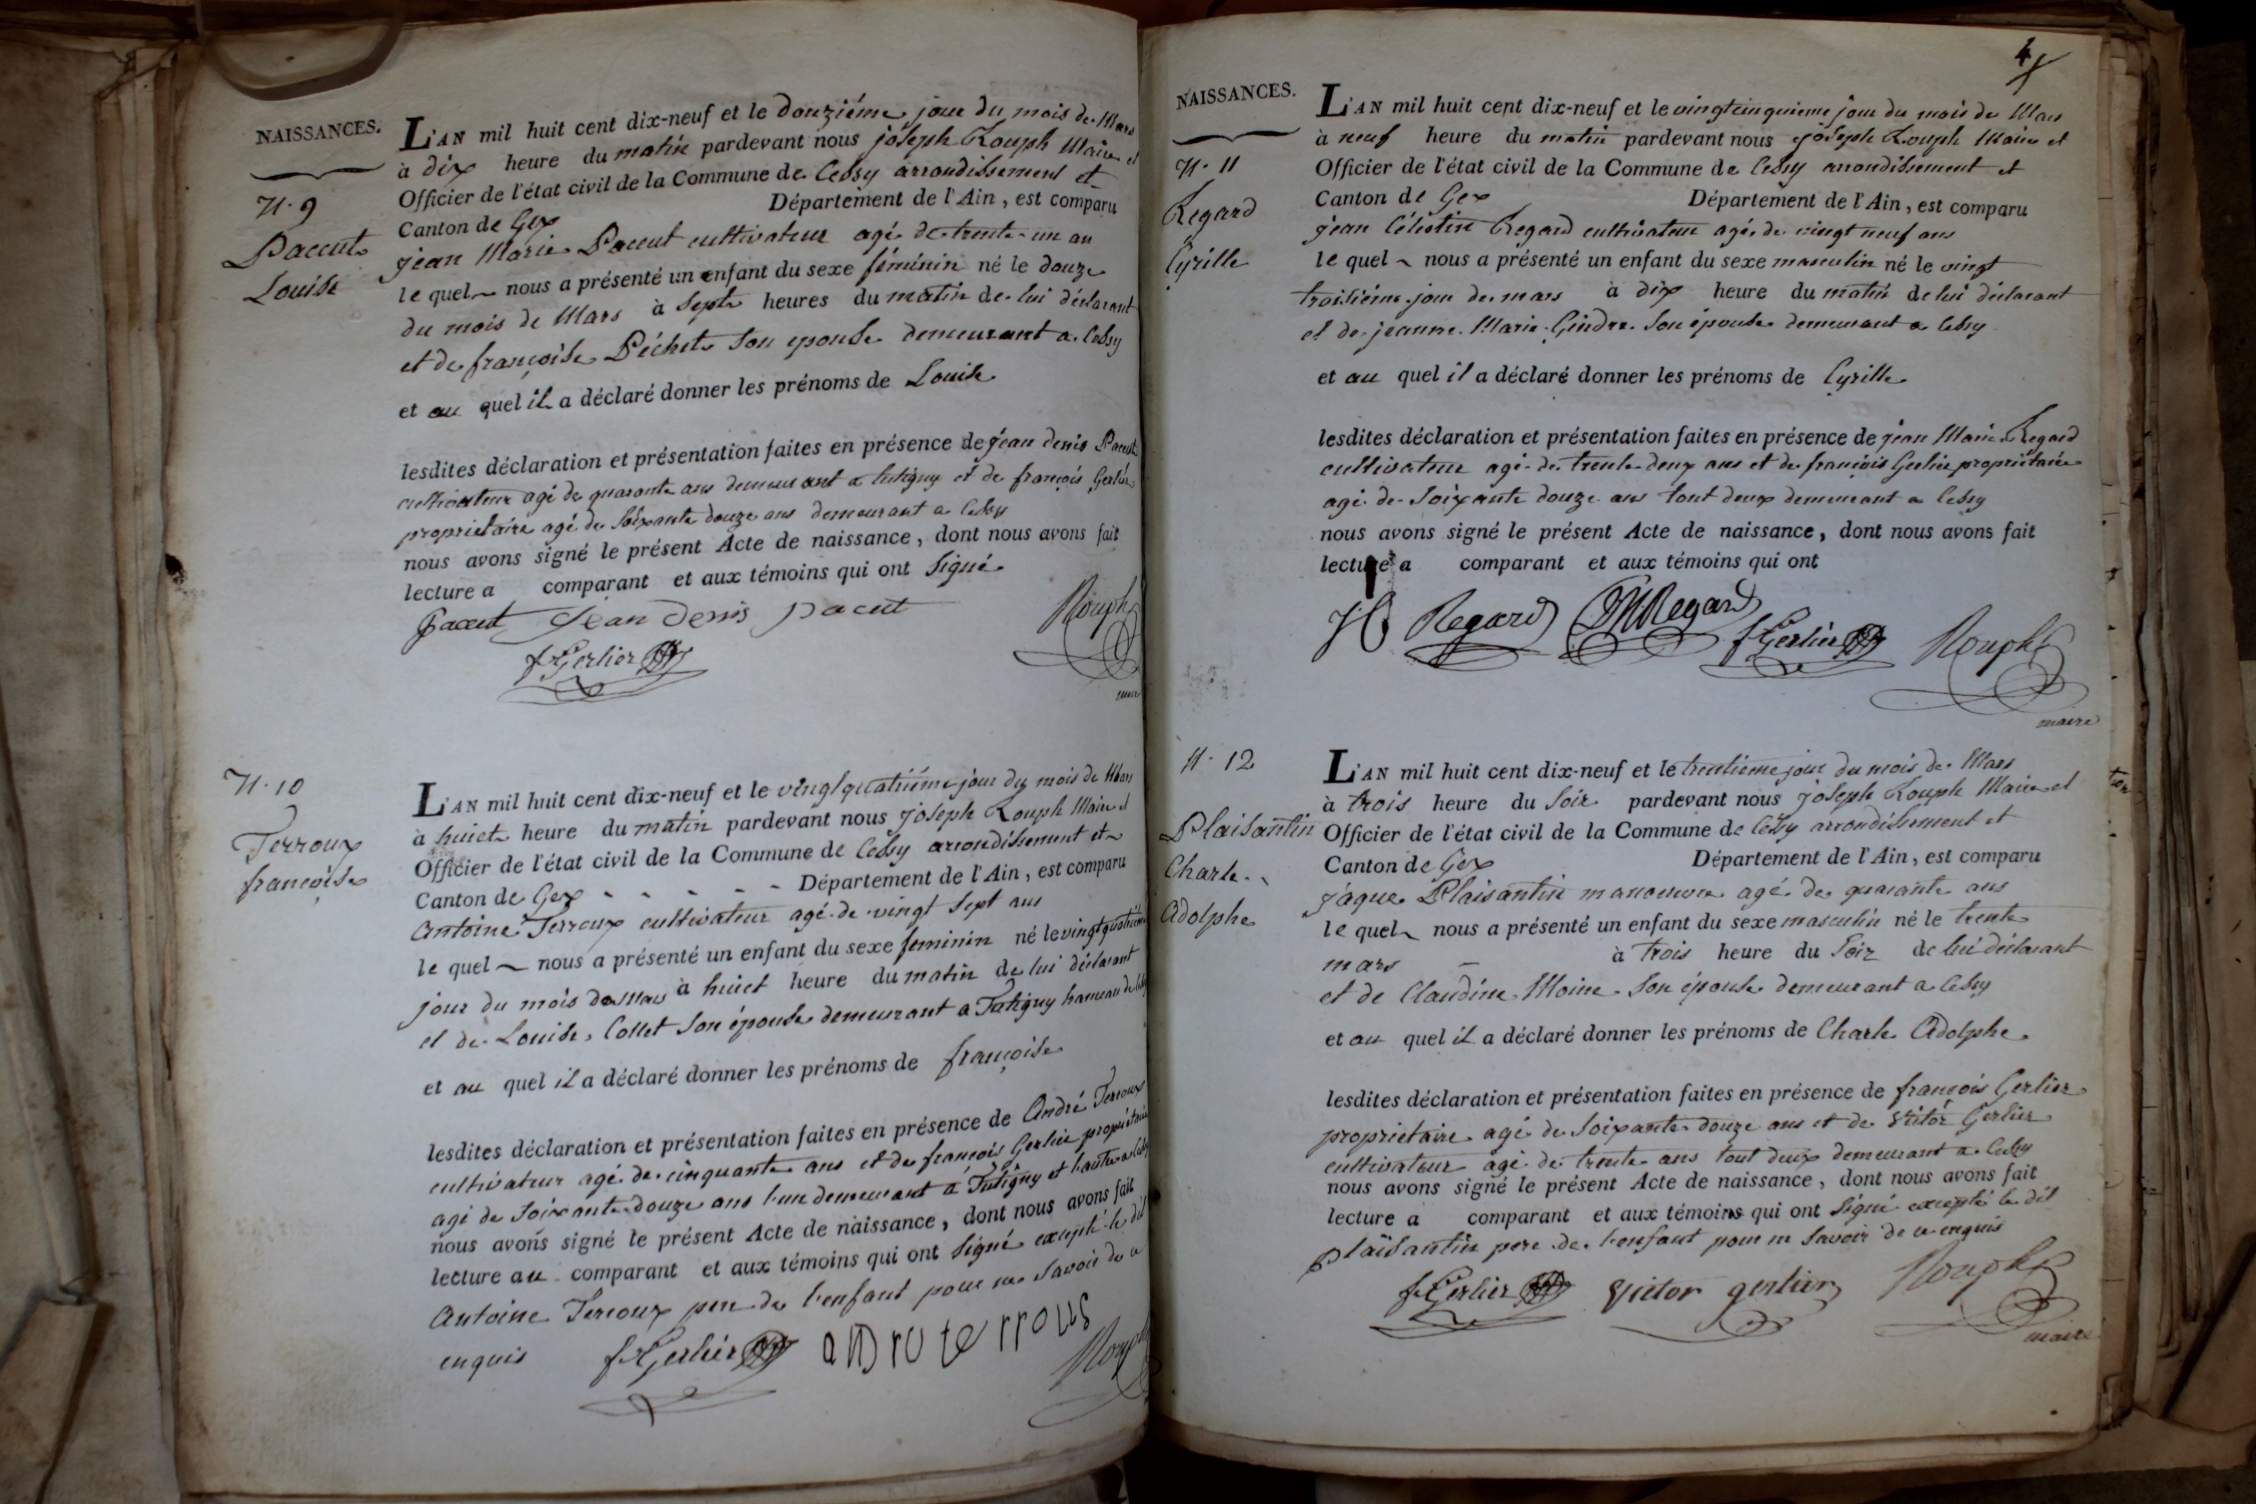 NAISSANCES.
N. 9
Paccut
Louise
L'AN mil huit cent dix-neuf et le douziéme jour du mois de Mars
à dix heure du matin pardevant nous joseph Rouph Maire et
Officier de l'état civil de la Commune de Cessy arrondissement et
Canton de Gex Département de l'Ain, est comparu
jean Marie Paccut cultivateur agé de trente un an
le quel nous a présenté un enfant du sexe féminin né le douze
du mois de Mars à Sept heures du matin de lui déclarant
et de françoise Péchet Son epouse demeurant a Cessy
et au quel il a déclaré donner les prénoms de Louise
lesdites déclaration et présentation faites en présence de jean denis Paccut
cultivateur agé de quarante ans demeurant a tutigny et de françois Gerlier
proprietaire agé de Soixante douze ans demeurant a Cessy
nous avons signé le présent Acte de naissance, dont nous avons fait
lecture a comparant et aux témoins qui ont Signé
Paccut Jean Denis pacut Rouph
f Gerlier
maire
N. 10
Terroux
françoise
L'AN mil huit cent dix-neuf et le vingt quatriéme jour du mois de Mars
à huict heure du matin pardevant nous joseph Rouph Maire et
Officier de l'état civil de la Commune de Cessy arrondissement et
Canton de Gex Département de l'Ain, est comparu
Antoine Terroux cultivateur agé de vingt Sept ans
le quel nous a présenté un enfant du sexe feminin né le vingt quatriéme
jour du mois de Mars à huict heure du matin de lui déclarant
et de Louise Collet Son épouse demeurant a Tutigny hameau de Cessy
et au quel il a déclaré donner les prénoms de françoise
lesdites déclaration et présentation faites en présence de André Terroux
cultivateur agé de cinquante ans et de françois Gerlier propriétaire
agé de Soixante douze ans l'un demeurant a Tutigny et l'autre a Cessy
nous avons signé le présent Acte de naissance, dont nous avons fait
lecture au comparant et aux témoins qui ont Signé excepté le dit
Antoine Terroux pere de l'enfant pour ne Savoir de a
enquis f Gerlier andre terrous Rouph
4
NAISSANCES.
N. 11
Regard
Cyrille
L'AN mil huit cent dix-neuf et le vingtcinquieme jour du mois de Mars
à neuf heure du matin pardevant nous joseph Rouph Maire et
Officier de l'état civil de la Commune de Cessy arrondissement et
Canton de Gex Département de l'Ain, est comparu
jean Célistin Regard cultivateur agé de vingt neuf ans
le quel nous a présenté un enfant du sexe masculin né le vingt
troisiéme jour de mars à dix heure du matin de lui déclarant
et de jeanne Marie Gindre Son épouse demeurant a Cessy
et au quel il a déclaré donner les prénoms de Cyrille
lesdites déclaration et présentation faites en présence de jean Marie Regard
cultivateur agé de trente deux ans et de françois Gerlier propriétaire
agé de Soixante douze ans tout deux demeurant a Cessy
nous avons signé le présent Acte de naissance, dont nous avons fait
lecture a comparant et aux témoins qui ont
Regard JMRegard f Gerlier Rouph
maire
N. 12
Plaisantin
Charle
Adolphe
L'AN mil huit cent dix-neuf et le trentieme jour du mois de Mars
à trois heure du Soir pardevant nous joseph Rouph Maire et
Officier de l'état civil de la Commune de Cessy arrondissement et
Canton de Gex Département de l'Ain, est comparu
jaque Plaisantin manoeuvre agé de quarante ans
le quel nous a présenté un enfant du sexe masculin né le trente
mars à trois heure du Soir de lui déclarant
et de Claudine Moine Son épouse demeurant a Cessy
et au quel il a déclaré donner les prénoms de Charle Adolphe
lesdites déclaration et présentation faites en présence de françois Gerlier
proprietaire agé de Soixante douze ans et de Victor Gerlier
cultivateur agé de trente ans tout deux demeurant a Cessy
nous avons signé le présent Acte de naissance, dont nous avons fait
lecture a comparant et aux témoins qui ont Signé excepté le dit
Plaisantin pere de l'enfant pour ne Savoir de a enquis
f Gerlier Victor gerlier Rouph
maire